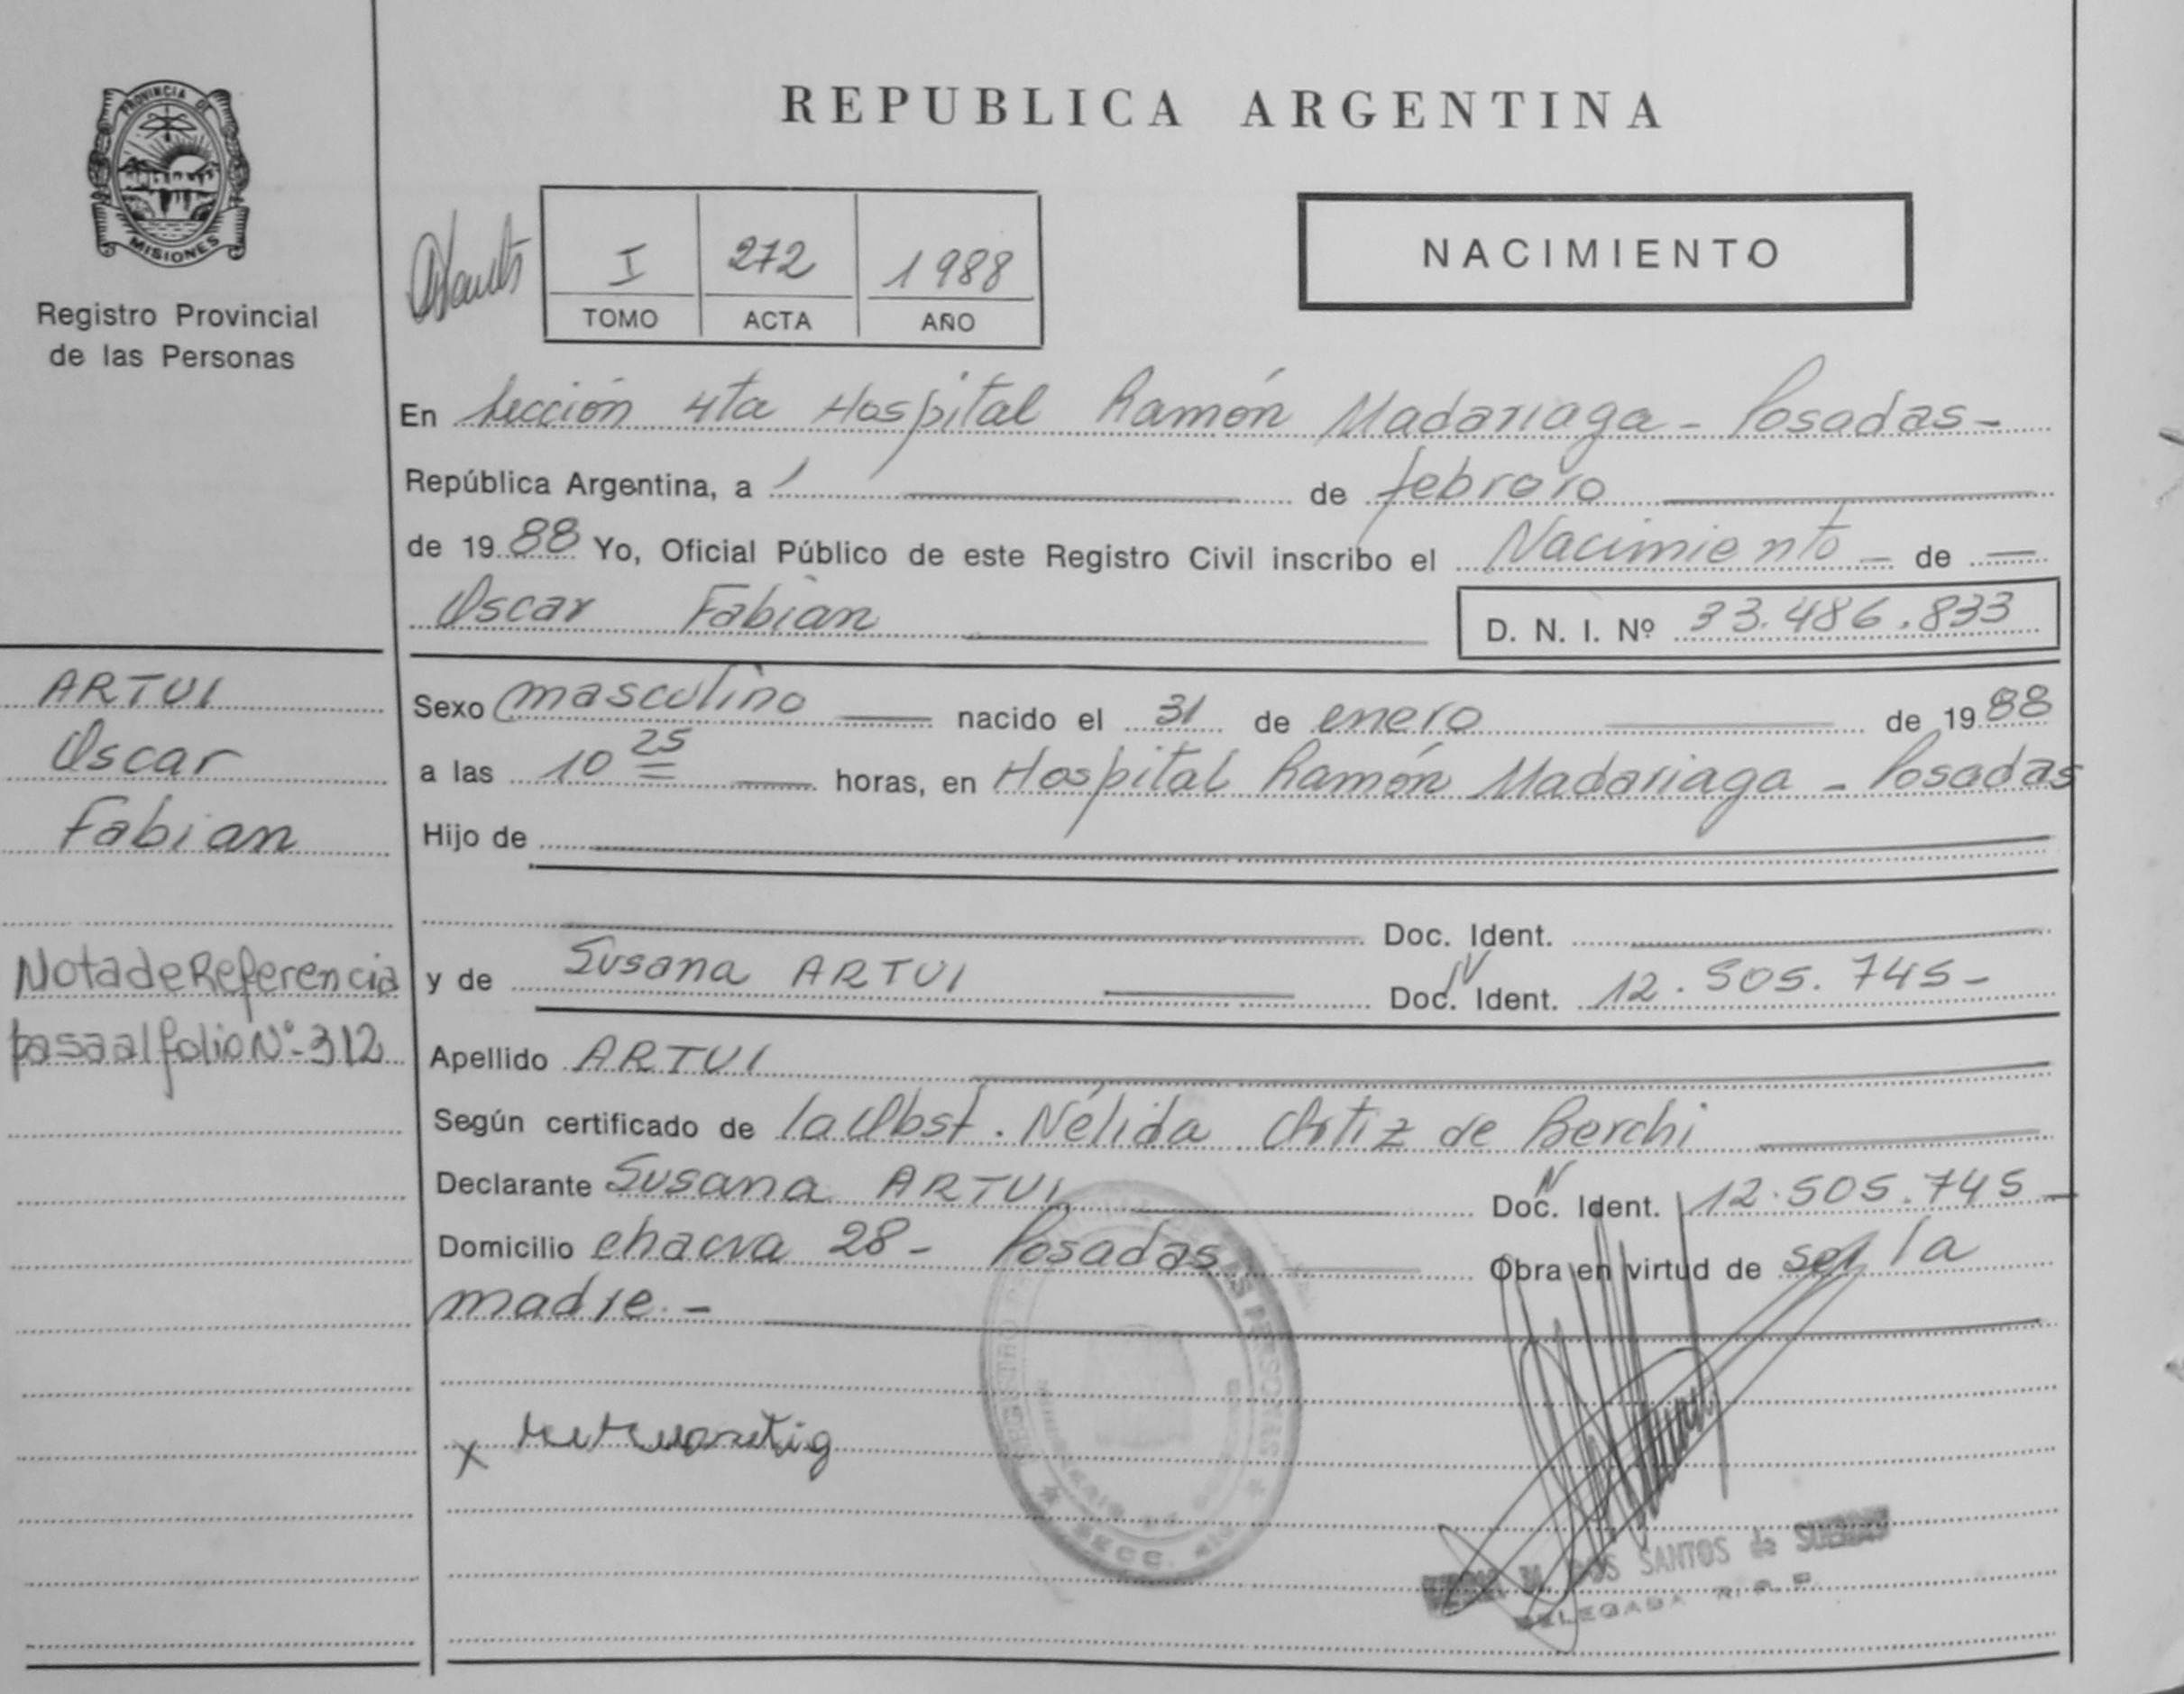 PROVINCIA DE
MISIONES
Registro Provincial
de las Personas
REPUBLICA ARGENTINA
I 272 1988
TOMO ACTA AÑO
NACIMIENTO
En Sección 4ta Hospital Ramón Madariaga - Posadas -
República Argentina, a 1 de febrero
de 1988 Yo, Oficial Público de este Registro Civil inscribo el Nacimiento - de
Oscar Fabian D. N. I. Nº 33.486.833
ARTUI
Oscar
Fabian
Nota de Referencia
pasa al folio Nº-312
Sexo masculino nacido el 31 de enero de 1988
a las 10 25 horas, en Hospital Ramón Madariaga - Posadas
Hijo de
Doc. Ident.
y de Susana ARTUI Doc. Ident. 12.505.745-
Apellido ARTUI
Según certificado de la Obst. Nélida Ortiz de Berchi
Declarante Susana ARTUI Doc. Ident. 12.505.745-
Domicilio chacra 28 - Posadas Obra en virtud de ser la
madre.-
x
REGISTRO LAS PERSONAS
SECC. 4ta
DOS SANTOS de
DELEGADA R. P. P.